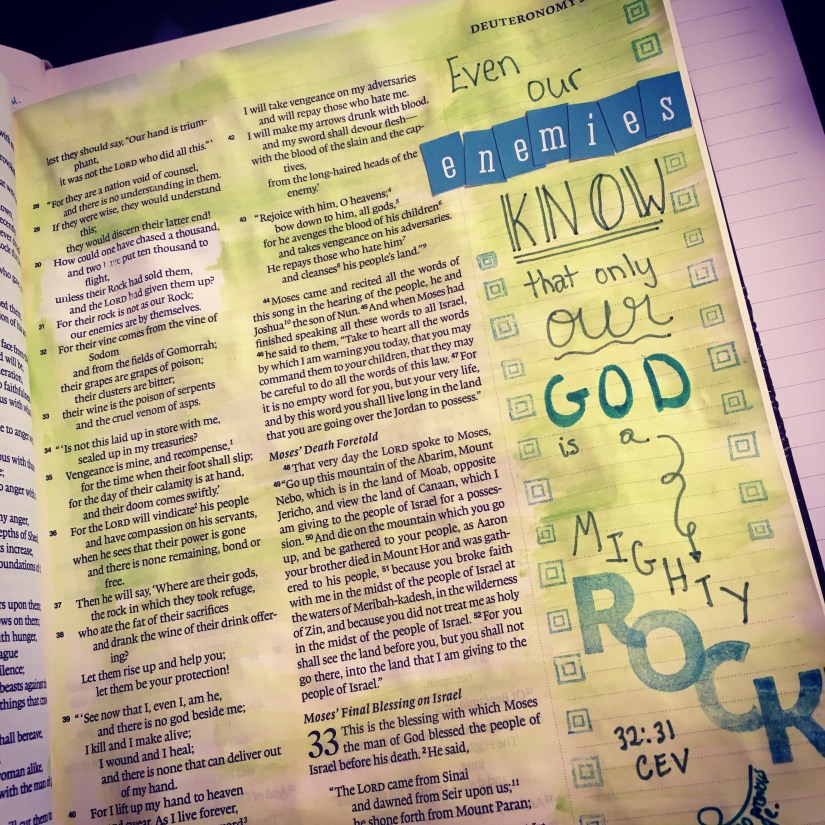 DEUTERONOMY
lest they should say, "Our hand is trium-
phant,
it was not the LORD who did all this."'
28 "For they are a nation void of counsel,
and there is no understanding in them.
29 If they were wise, they would understand
this;
they would discern their latter end!
30 How could one have chased a thousand,
and two put ten thousand to
flight,
unless their Rock had sold them,
and the LORD had given them up?
31 For their rock is not as our Rock;
our enemies are by themselves.
32 For their vine comes from the vine of
Sodom
and from the fields of Gomorrah;
their grapes are grapes of poison;
their clusters are bitter;
33 their wine is the poison of serpents
and the cruel venom of asps.
34 "'Is not this laid up in store with me,
sealed up in my treasuries?
35 Vengeance is mine, and recompense,1
for the time when their foot shall slip;
for the day of their calamity is at hand,
and their doom comes swiftly.'
36 For the LORD will vindicate2 his people
and have compassion on his servants,
when he sees that their power is gone
and there is none remaining, bond or
free.
37 Then he will say, 'Where are their gods,
the rock in which they took refuge,
38 who ate the fat of their sacrifices
and drank the wine of their drink offer-
ing?
Let them rise up and help you;
let them be your protection!
39 "'See now that I, even I, am he,
and there is no god beside me;
I kill and I make alive;
I wound and I heal;
and there is none that can deliver out
of my hand.
40 For I lift up my hand to heaven
swear, As I live forever,
I will take vengeance on my adversaries
and will repay those who hate me.
42 I will make my arrows drunk with blood,
and my sword shall devour flesh—
with the blood of the slain and the cap-
tives,
from the long-haired heads of the
enemy.'
43 "Rejoice with him, O heavens;4
bow down to him, all gods,5
for he avenges the blood of his children6
and takes vengeance on his adversaries.
He repays those who hate him7
and cleanses8 his people's land."9
44 Moses came and recited all the words of
this song in the hearing of the people, he and
Joshua10 the son of Nun. 45 And when Moses had
finished speaking all these words to all Israel,
46 he said to them, "Take to heart all the words
by which I am warning you today, that you may
command them to your children, that they may
be careful to do all the words of this law. 47 For
it is no empty word for you, but your very life,
and by this word you shall live long in the land
that you are going over the Jordan to possess."
Moses' Death Foretold
48 That very day the LORD spoke to Moses,
49 "Go up this mountain of the Abarim, Mount
Nebo, which is in the land of Moab, opposite
Jericho, and view the land of Canaan, which I
am giving to the people of Israel for a posses-
sion. 50 And die on the mountain which you go
up, and be gathered to your people, as Aaron
your brother died in Mount Hor and was gath-
ered to his people, 51 because you broke faith
with me in the midst of the people of Israel at
the waters of Meribah-kadesh, in the wilderness
of Zin, and because you did not treat me as holy
in the midst of the people of Israel. 52 For you
shall see the land before you, but you shall not
go there, into the land that I am giving to the
people of Israel."
Moses' Final Blessing on Israel
33 This is the blessing with which Moses
the man of God blessed the people of
Israel before his death. 2 He said,
"The LORD came from Sinai
and dawned from Seir upon us;11
he shone forth from Mount Paran;
Even
our
enemies
KNOW
that only
our
GOD
is a
MIGHTY
ROCK
32:31
CEV